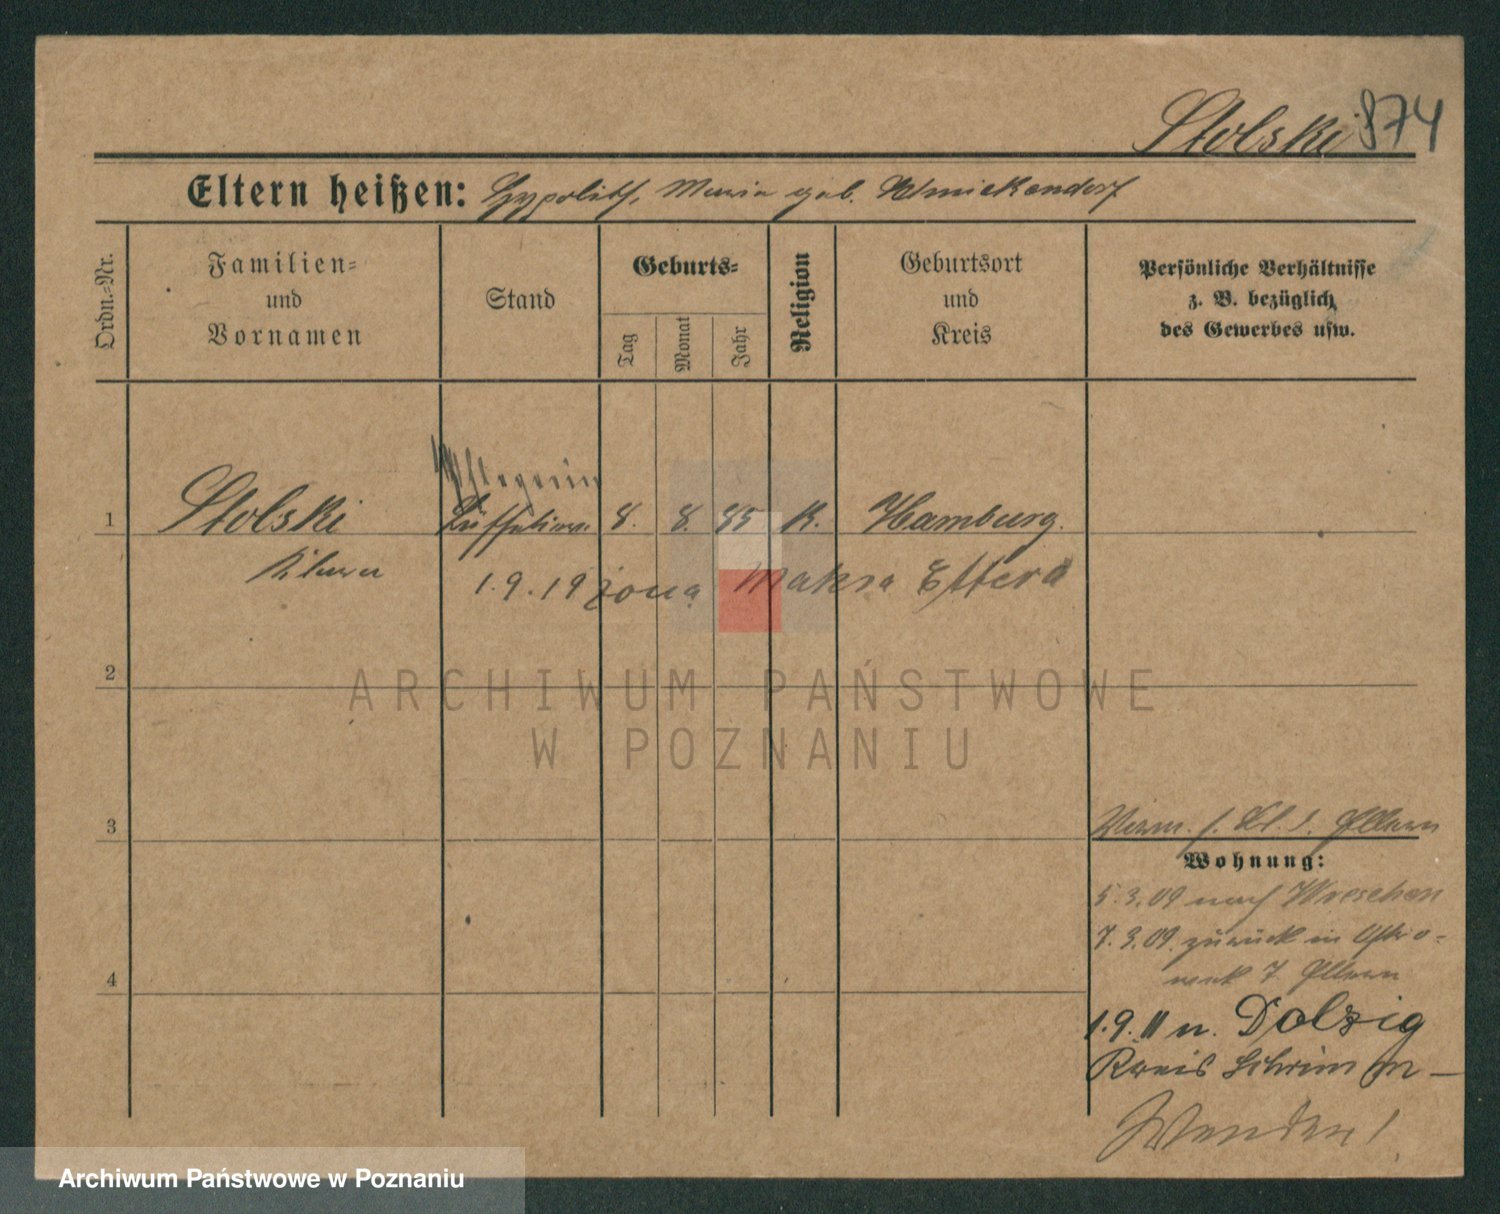 Stolski 874
Eltern heißen: Hypolith, Maria geb. Schmickendorf
Ordn.-Nr.
Familien-
und
Vornamen
Stand
Geburts-
Tag
Monat
Jahr
Religion
Geburtsort
und
Kreis
Persönliche Verhältnisse
z. B. bezüglich
des Gewerbes usw.
Pflegerin
1 Stolski 8. 8. 85 K. Hamburg.
Klara 1.9.19 żona Maksa Ettera
2
ARCHIWUM PAŃSTWOWE
W POZNANIU
3
Wohnung:
5.3.09 nach Wreschen
7.3.09. zurück in
4
1.9.11 n. Dolzig
Kreis Schrimm
Wenden!
Archiwum Państwowe w Poznaniu